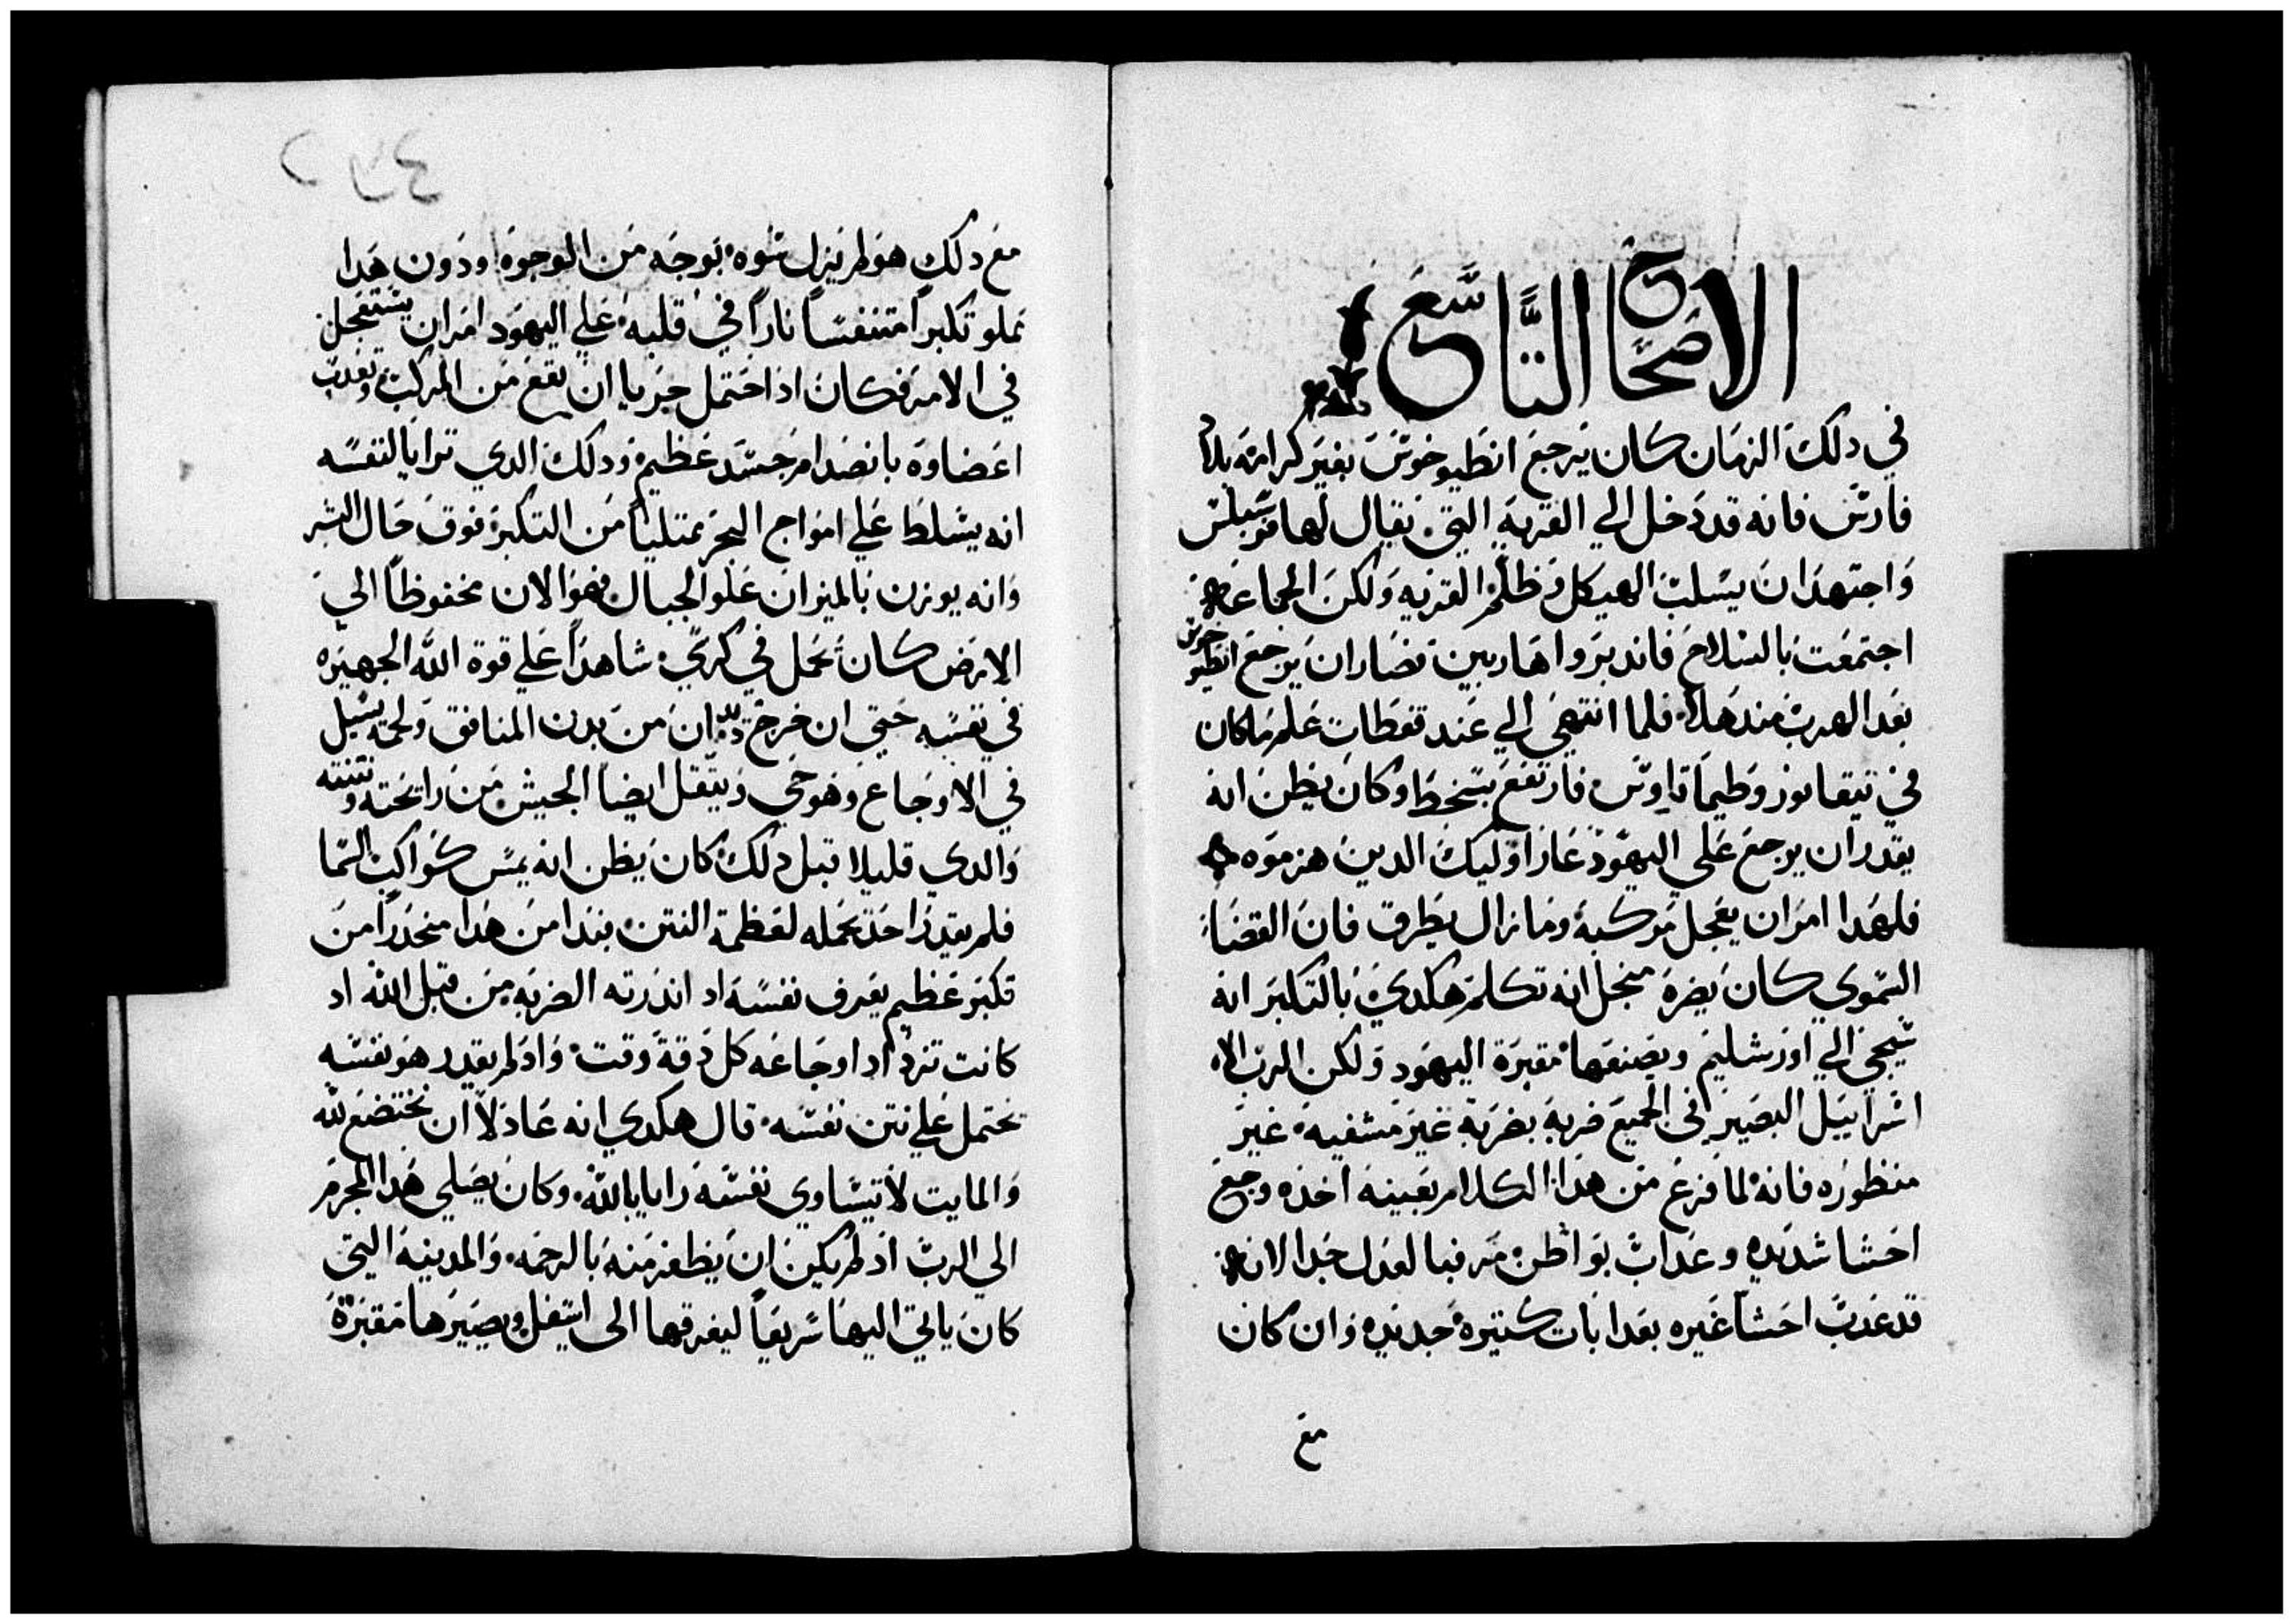 الاصحاح التاسع
في دلك الزمان كان يرجع انطيوخوس بغير كرامة بلاد
فارس فانه قد دخل الي القرية التي يقال لها فرسبلس
واجتهد ان يسلب الهيكل وظلم القريه ولكن الجماعه
اجتمعت بالسلاح فاندبروا هاربين فصار ان يرجع انطيوخوس
بعد الهرب مند هلا فلما انتهي الي عند قفطان علم ما كان
في نيقانور وطيماتاوس فارتفع بسخط وكان يظن انه
يقدر ان يرجع علي اليهود عار اوليك الدين هزموه
فلهدا امر ان يعجل مركبه وما زال يطرق فان القضا
السموي كان يضره منجل انه تكلم هكدي بالتكبر انه
سيجي الي اورشليم ويصنعها مقبرة اليهود ولكن الرب الاه
اسراييل البصير في الجميع ضربه بضربة غير مشفيه غير
منظوره فانه لما فرغ من هدا الكلام بعينه اخده وجع
احشا شديده وعداب بواطن مر فبالعدل جدا لانه
قد عدب احشا غيره بعدابات كتيره جديده وان كان
مع
مع دلك هو لم يزل سوه بوجه من الوجوه ودون هدا
مملو تكبرا متنفسا نارا في قلبه علي اليهود امر ان يستعجل
في الامر فكان اد احتمل جريا ان يقع من المركب وتعدب
اعضاوه بانصدام جسد عظيم ودلك الدي ترايا لنفسه
انه يسلط علي امواج البحر ممتليا من التكبر فوق حال البشر
وانه يوزن بالميزان علو الجبال فهو الان مخفوظا الي
الارض كان يحمل في كرسي شاهدا علي قوة الله الجهيره
في نفسه حتي ان خرج ديدان من بدن المنافق ولحمه يسيل
في الاوجاع وهو حي ويتقل ايضا الجيش من رايحته ونتنه
والدي قليلا قبل دلك كان يظن انه يمس كواكب السما
فلم يقدر احد يحمله لعظمة النتن فبدا من هدا منحدرا من
تكبر عظيم يعرف نفسه اد اندرته الضربه من قبل الله اد
كانت تزداد اوجاعه كل دقة وقت واد لم يقدر هو نفسه
يحتمل علي نتن نفسه قال هكدي انه عادلا ان يختضع لله
والمايت لا يساوي نفسه رايا بالله وكان يصلي هدا المجرم
الي الرب اد لم يكين ان يظفر منه بالرحمه والمدينه التي
كان ياتي اليها سريعا ليغرقها الي اسفل ويصيرها مقبرة